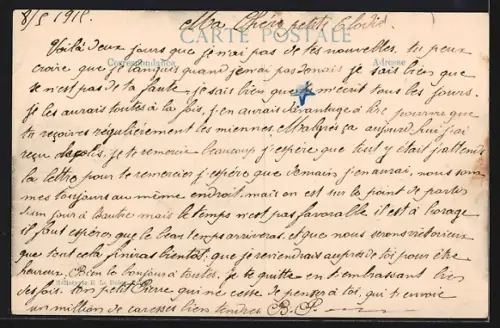 8/5 1915. Ma Chère petite Elodie.
CARTE POSTALE
Correspondance Adresse
Voilà deux jours que je n'ai pas de tes nouvelles. tu peux
croire que je languis quand je n'ai pas de mais je sais bien que
se n'est pas de ta faute. je sais bien que m'écrit tous les jours.
Je les aurais toutes à la fois, j'en aurais davantage à lire pourvu que
tu reçoives régulièrement les miennes. Malgrès ça aujourd'hui j'ai
reçu le colis, je te remercie beaucoup j'espère que tout y était j'attends
ta lettre pour te remercier j'espère que demain j'en aurai, nous som
mes toujours au même endroit. mais on est sur le point de partir
d'un jour à l'autre mais le temps n'est pas favorable il est à l'orage
il faut espérer que le beau temps arriveras. et que nous serons victorieux
que tout cela finiras bientôt, que je reviendrais auprès de toi pour être
heureux. Bien le bonjour à toutes. je te quitte en t'embrassant bien
des fois. ton petit Pierre qui ne cesse de penser à toi, qui t'envoie
un million de caresses bien tendres B. P.